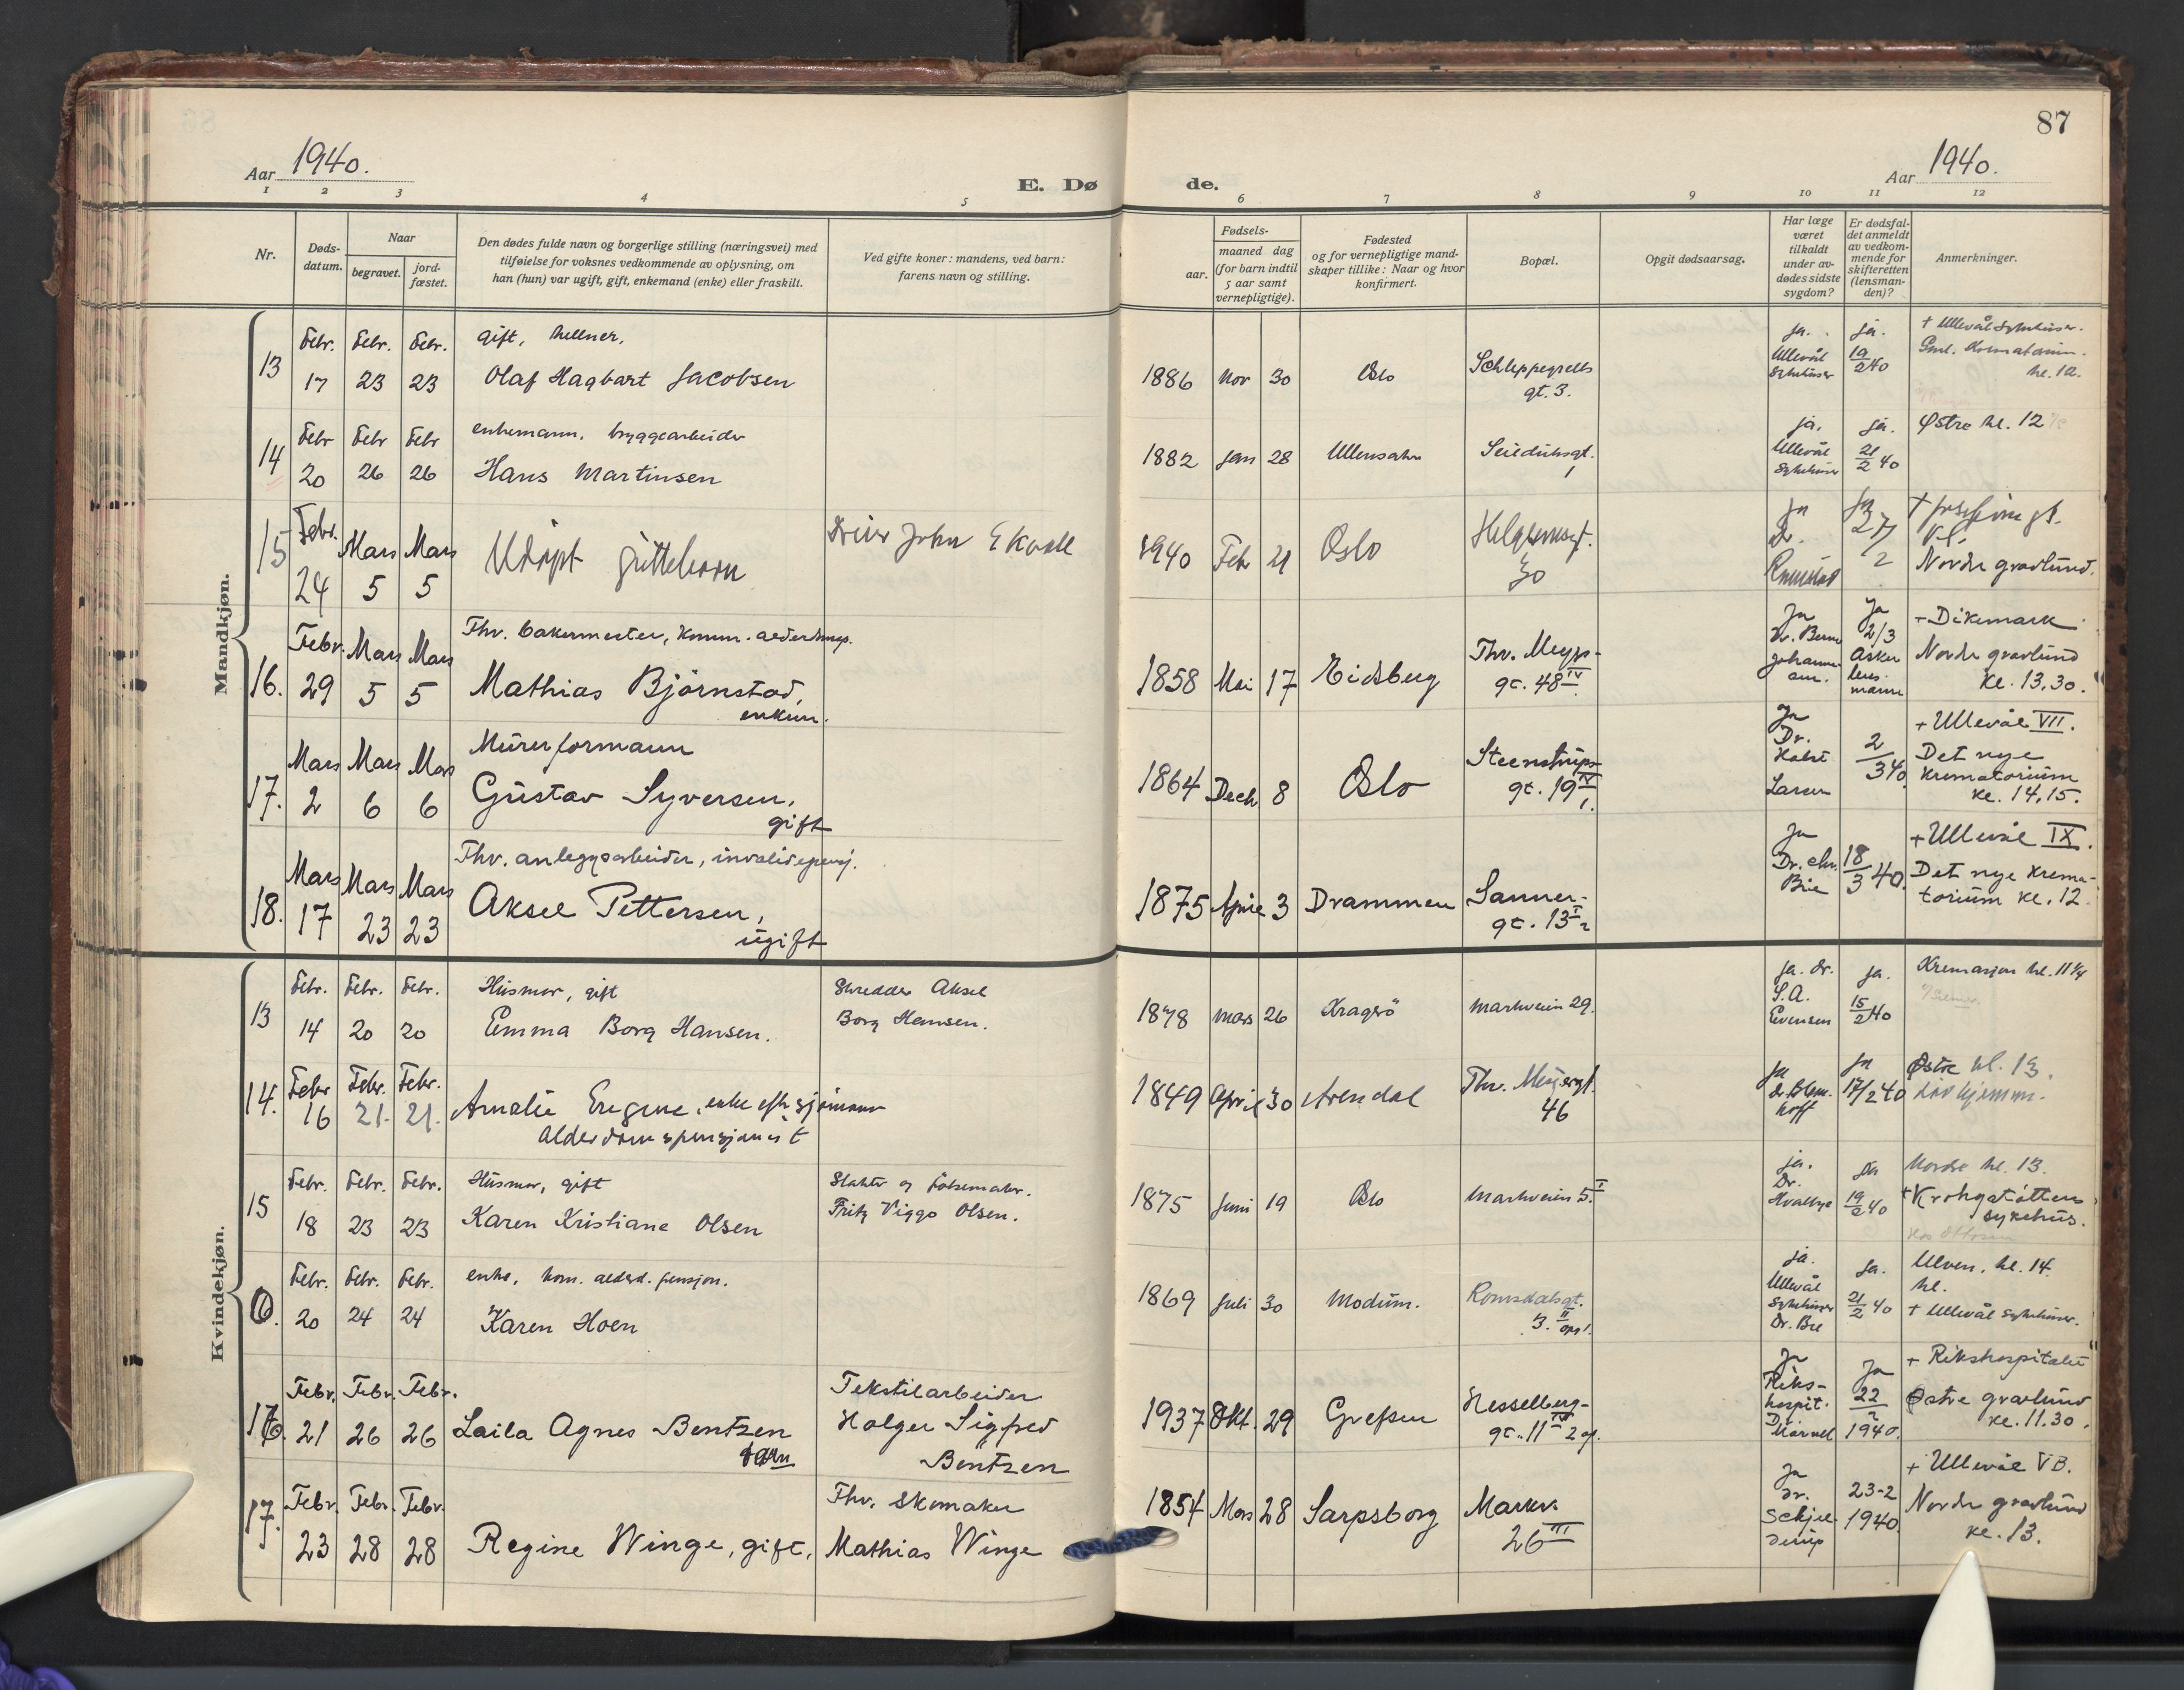 87
Aar 1940.
E. Døde.
Aar 1940.
1 2 3 4 5 6 7 8 9 10 11 12
Nr.
Døds-datum.
Naar
begravet.
jord-fæstet.
Den dødes fulde navn og borgerlige stilling (næringsvei) med
tilføielse for voksnes vedkommende av oplysning, om
han (hun) var ugift, gift, enkemand (enke) eller fraskilt.
Ved gifte koner: mandens, ved barn:
farens navn og stilling.
Fødsels-
aar.
maaned dag
(for barn indtil
5 aar samt
vernepligtige).
Fødested
og for vernepligtige mand-
skaper tillike: Naar og hvor
konfirmert.
Bopæl.
Opgit dødsaarsag.
Har læge
været
tilkaldt
under av-
dødes sidste
sygdom?
Er dødsfal-
det anmeldt
av vedkom-
mende for
skifteretten
(lensman-
den)?
Anmerkninger.
Mandkjøn.
Febr. Febr. Febr. gift, kellner.
13 17 23 23 Olaf Hagbart Jacobsen
1886 Nov 30 Oslo Schleppegrells gt. 3.
ja. Ullevål sykehus
ja. 19/2 40
+ Ullevål sykehus.
Gml. Krematorium.
kl. 12.
Febr Febr Febr enkemann, bryggearbeider
14 20 26 26 Hans Martinsen
1882 Jan 28 Ullensaker
ja. Ullevål sykehus
ja. 21/2 40
Østre kl. 12
Febr. Mars Mars
15 24 5 5 Udøpt guttebarn
John
1940 Feb 21 Oslo
30
Ja Dr.
Ja 27/2
Nordre gravlund.
Febr. Mars Mars Thv. bakermester, komm.
16. 29 5 5 Mathias Bjørnstad,
enkem.
1858 Mai 17 Eidsberg Thv. Meyer-
gt. 48 IV.
Ja Dr.
Ja 2/3 Asker lens-mann
+ Dikemark
Nordre gravlund
kl. 13,30.
Mars Mars Mars Murerformann
17. 2 6 6 Gustav Syversen,
gift
1864 Decb 8 Oslo Steenstrups-
gt. 19 IV
1.
Ja Dr. Holst Larsen
2/3 40.
+ Ullevål VII.
Det nye
krematorium
kl. 14,15.
Mars Mars Mars Thv. anleggsarbeider, invalidepensj.
18. 17 23 23 Aksel Pettersen,
ugift
1875 April 3 Drammen Sanner-
gt. 13 I 2
Ja Dr. Chr. Bie
18/3 40.
+ Ullevål IX.
Det nye krema-
torium kl. 12.
Kvindekjøn.
Febr. Febr. Febr. Husmor, gift Skredder Aksel
13 14 20 20 Emma Borg Hansen. Borg Hansen.
1878 mars 26 Kragerø Markveien 29.
ja. dr. S.A. Evensen
ja. 15/2 40
Kremasjon kl. 11 1/4
Febr Febr. Febr.
14. 16 21. 21. Amalie Eugene, enke efter sjømann
Alderdomspensjonist
1849 April 30 Arendal Thv. Meyersgt.
46
Ja
Ja 17/2 40
Østre kl. 13.
Febr. Febr. Febr. Husmor, gift Slakter og pølsemaker.
15 18 23 23 Karen Kristiane Olsen Fritz Viggo Olsen.
1875 Juni 19 Oslo Markveien 5. I
ja. Dr.
Ja 19/2 40
Nordre kl. 13.
+ Krohgstøttens
sykehus.
Febr. Febr. Febr. enke, kom. alderd. pensjon.
6. 20 24 24 Karen Hoen
1869 Juli 30 Modum. Romsdalsgt.
3. II opg 1.
ja. Ullevål sykehus Dr. Bie
Ja. 21/2 40
Ulven. kl. 14.
kl.
+ Ullevål sykehus.
Febr. Febr. Febr. Tekstilarbeider
16. 21 26 26 Laila Agnes Bentzen Holger Sigfred
barn Bentzen
1937 Okt. 29 Grefsen Hesselberg-
gt. 11 IV 2 og.
Ja Riks-hospit. Dr.
Ja 22/2 1940.
+ Rikshospitalet
Østre gravlund
kl. 11.30.
Febr. Febr. Febr. Thv. Skomaker
17. 23 28 28 Regine Winge, gift. Mathias Winge
1854 Mars 28 Sarpsborg Markv.
26 III
Ja Dr. Schjelderup
23-2 1940
+ Ullevål VB.
Nordre gravlund
kl. 13.